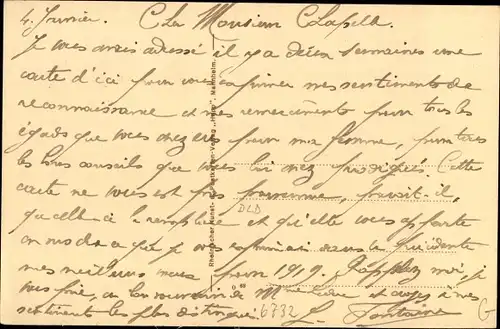 4 Janvier. Cher Monsieur Clapell.
Je vous avais adressé, il y a deux semaines une
carte d'ici pour vous exprimer mes sentiments de
reconnaissance et mes remerciements pour tous les
égards que vous chez eu pour ma femme, pour tous
les bons conseils que vous lui chez prodigués. Cette
carte ne vous est pas parvenue, paraît-il,
que celle-ci la remplace et qu'elle vous apporte
ce que je vous dans la précédente
mes meilleurs vœux pour 1919. Rappelez moi, je
vous prie, au bon souvenir de Mme et croyez à mes
sentiments les plus distingués. L. Fontaine
DLD
6732
G
Rheinischer Kunst- u. Postkarten-Verlag „Helio“, Mannheim.